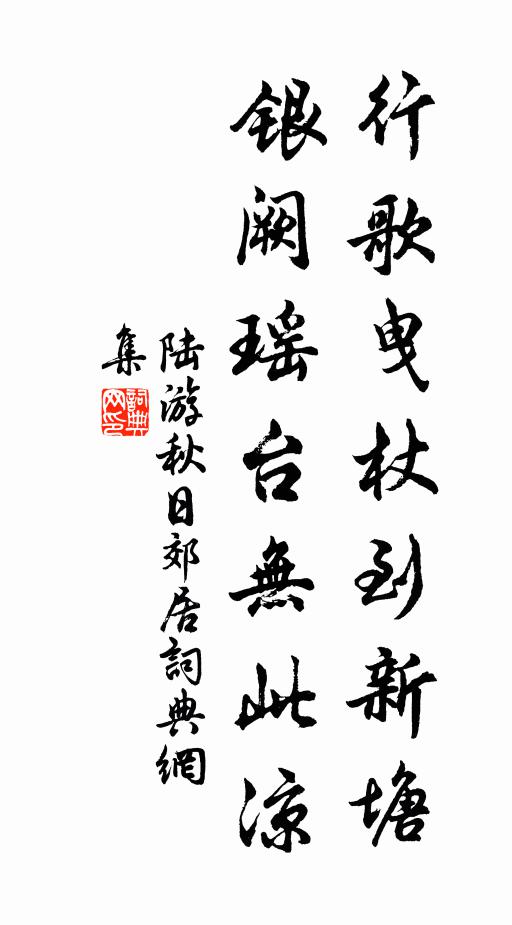 行歌曳杖到新塘
銀阙瑶台無此凉
陆游秋日郊居詞典網
集
詞典
网印